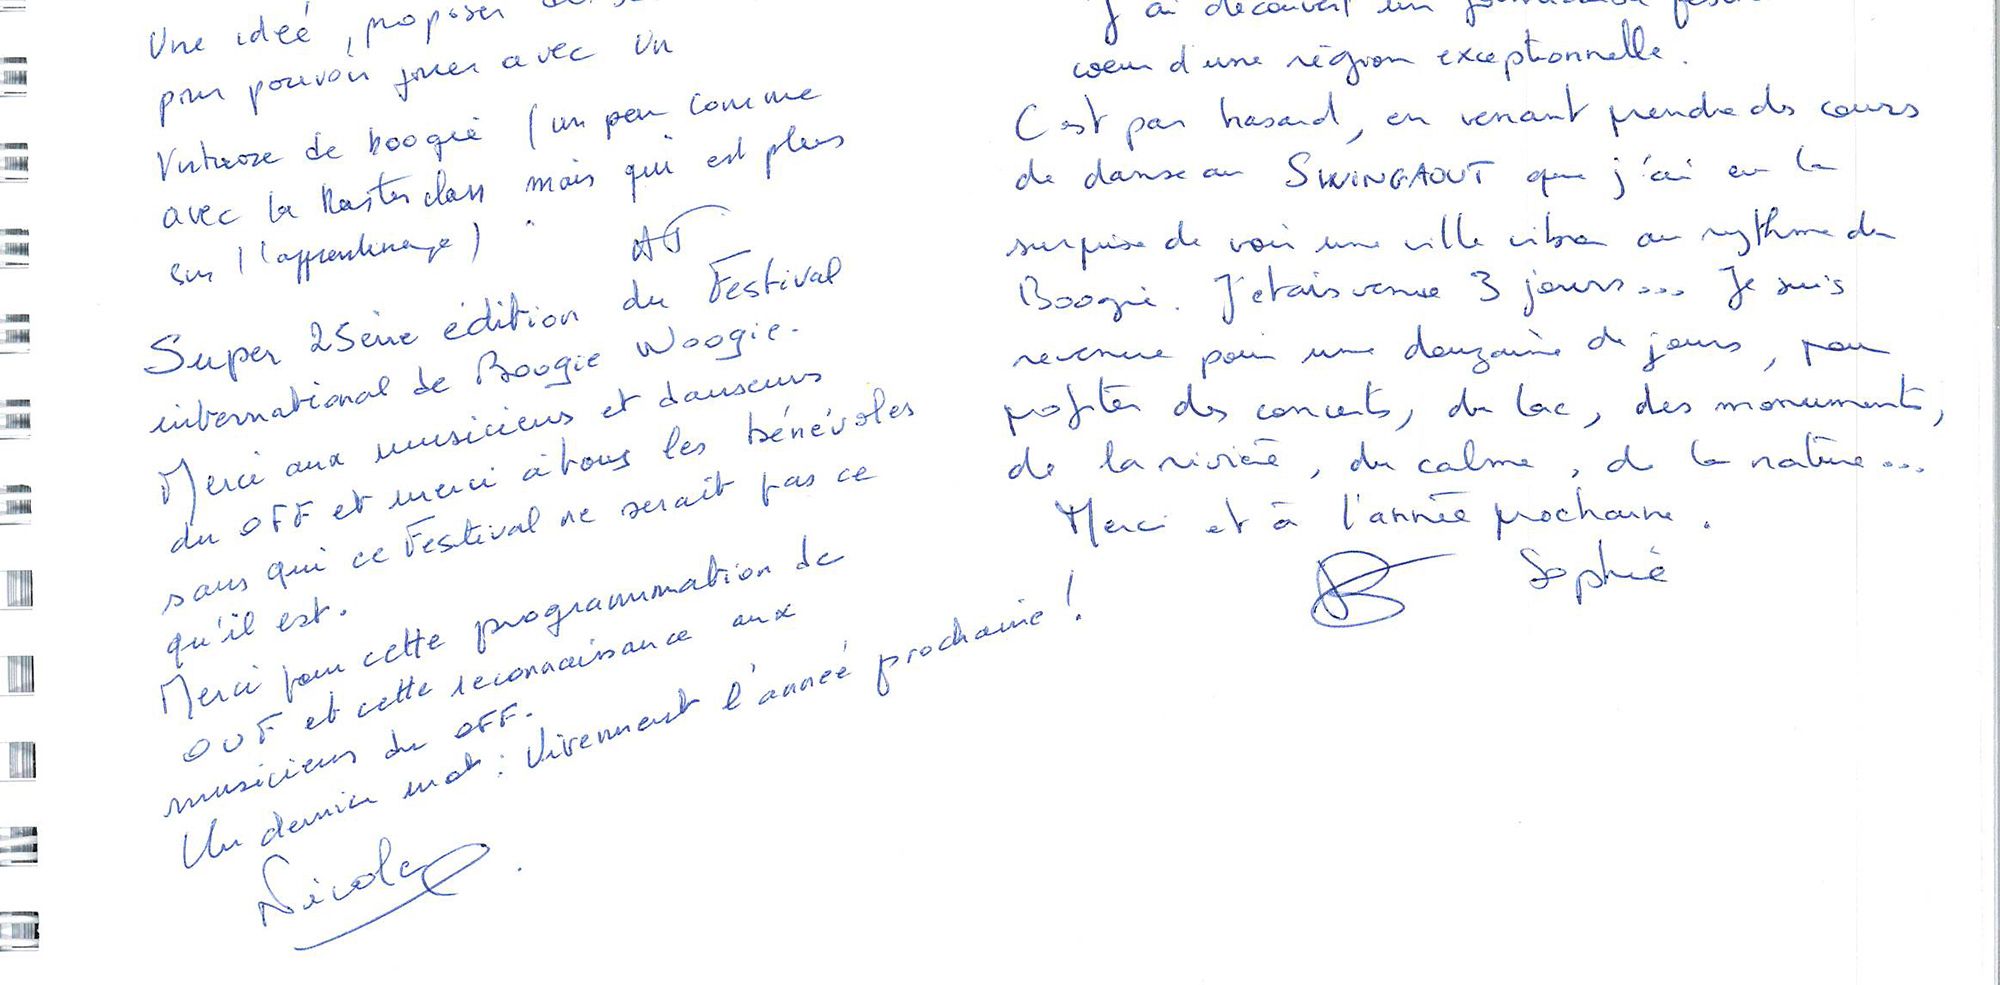 Une idée, proposer
pour pouvoir jouer avec un
virtuose de boogie (un peu comme
avec la Masterclass mais qui est plus
sur l'apprentissage)
AT
Super 25ème édition du Festival
international de Boogie Woogie.
Merci aux musiciens et danseurs
du OFF et merci à tous les bénévoles
sans qui ce Festival ne serait pas ce
qu'il est.
Merci pour cette programmation de
OUF et cette reconnaissance aux
musiciens du OFF.
Un dernier mot : Vivement l'année prochaine !
Nicolas
J'ai découvert un
coeur d'une région exceptionnelle.
C'est par hasard, en venant prendre des cours
de danse au SWINGAOUT que j'ai eu la
surprise de voir une ville vibrer au rythme du
Boogie. J'étais venue 3 jours... Je suis
revenue pour une douzaine de jours, pour
profiter des concerts, du lac, des monuments,
de la rivière, du calme, de la nature...
Merci et à l'année prochaine.
Sophie